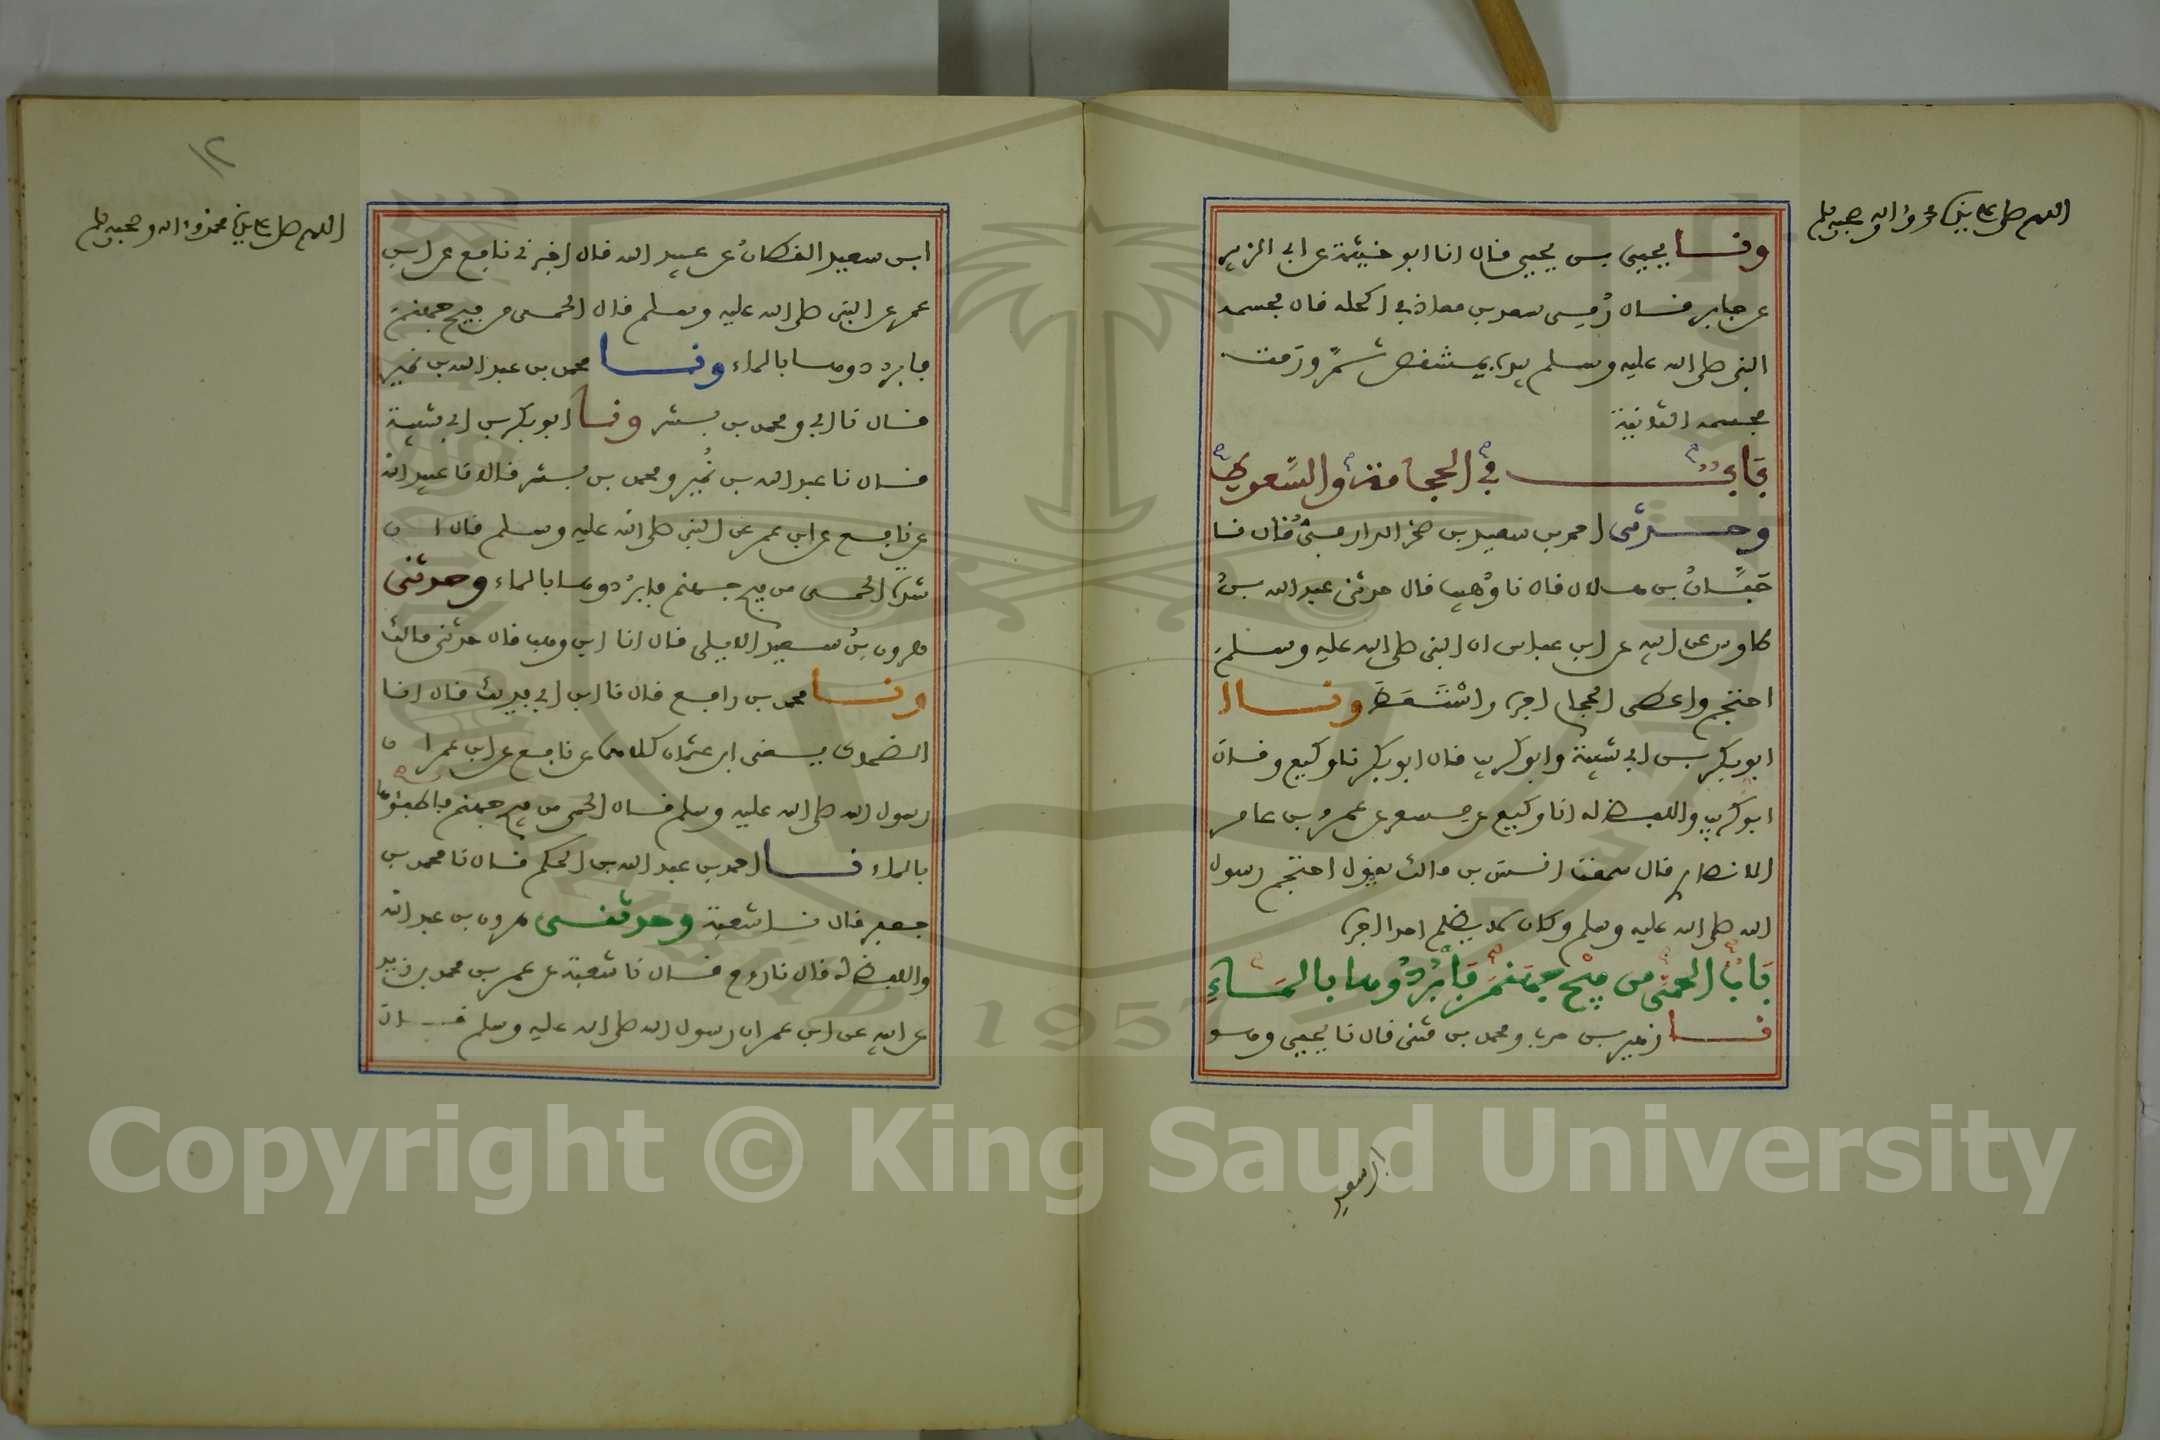 اللهم صل على نبينا محمد وءاله وصحبه وسلم
ونا يحيى بن يحيى قال انا ابو خيثمة عن ابي الزبير
عن جابر قال رُمِيَ سعد بن معاذ في اكحله قال فحسمه
النبي صلى الله عليه وسلم بيده بمشقص ثمّ ورمت
فحسمه الثانية
بَابٌ في الحجامة والسّعوط
وحدثني احمد بن سعيد بن صخر الدارمي قال نا
حَبّانُ بن هلال قال نا وُهيب قال حدثني عبد الله بنُ
طاوس عن ابيه عن ابن عباس ان النبي صلى الله عليه وسلم
احتجم واعطى الحجام اجره واسْتَعَطَ ونا
ابو بكر بن ابي شيبة وابو كريب قال ابو بكر نا وكيع وقال
ابو كريب واللفظ له انا وكيع عن مسعر عن عمرو بن عامر
الانصاري قال سمعت انس بن مالك يقول احتجم رسول
الله صلى الله عليه وسلم وكان لا يظلم احدا اجره
بَابُ الحمّى من فيْح جهنمَ فَابْرُدُوها بالمَاءِ
نا زهير بن حرب ومحمد بن مثنى قال نا يحيى وهو
ابن سعيد
اللهم صل على نبينا محمد وءاله وصحبه وسلم
١٢
ابن سعيد القطانُ عن عبيد الله قال اخبرني نافع عن ابن
عمر عن النبي صلى الله عليه وسلم قال الحمى من فيح جهنم
فابردوها بالماء ونا محمد بن عبد الله بن نمير
قال نا ابي ومحمد بن بشر ونا ابو بكر بن ابي شيبة
قال نا عبد الله بن نُمير ومحمد بن بشر قالا نا عبيد الله
عن نافع عن ابن عمر عن النبي صلى الله عليه وسلم قال ان
شدة الحمى من فيح جهنم فابرُدوها بالماء وحدثني
هرون بنُ سعيد الايلي قال انا ابن وهب قال حدثني مالك
ونا محمد بن رافع قال نا ابن ابي فديك قال انا
الضحاك يعني ابن عثمان كلاهما عن نافع عن ابن عمر ان
رسول الله صلى الله عليه وسلم قال الحمى من فيح جهنم فاطفئوها
بالماء نا احمد بن عبد الله بن الحكم قال نا محمد بن
جعفر قال نا شعبة وحدثني هرون بن عبد الله
واللفظ له قال نا روح قال نا شعبة عن عمر بن محمد بن زيد
عن ابيه عن ابن عمر ان رسول الله صلى الله عليه وسلم قال
1957
Copyright © King Saud University